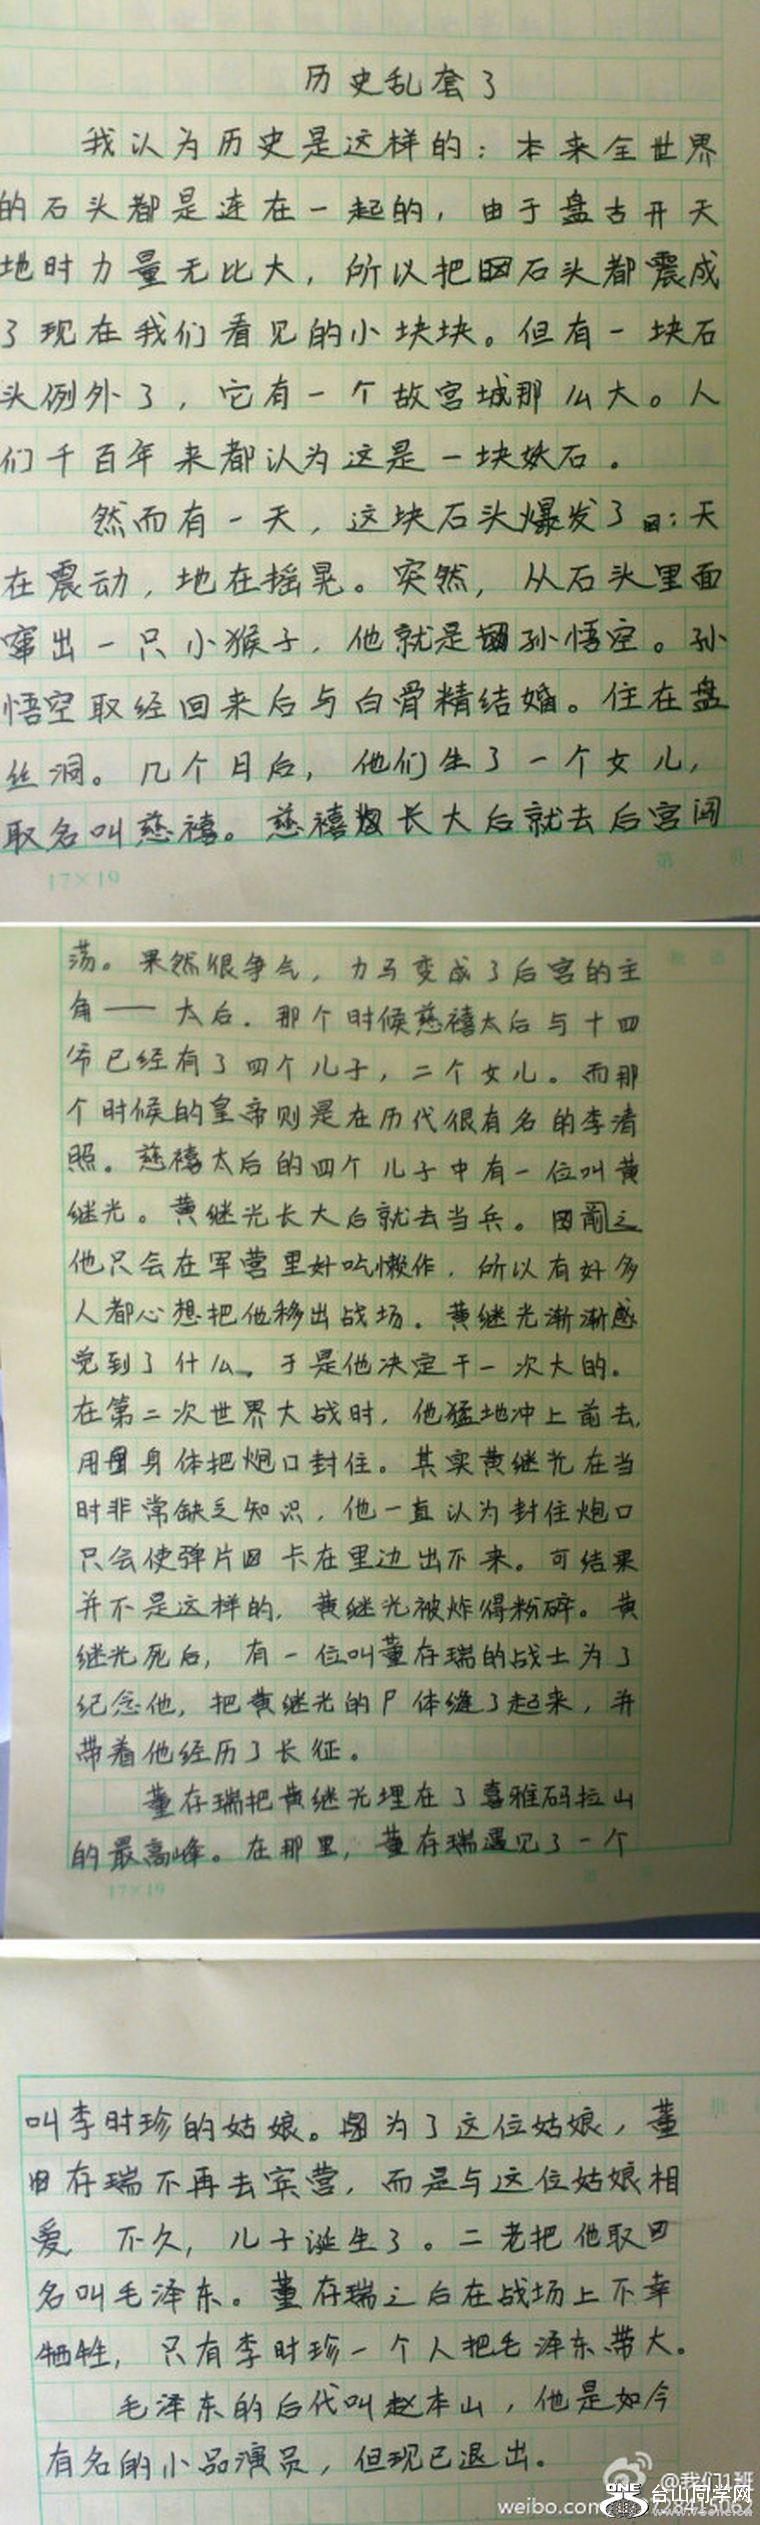 历史乱套了
我认为历史是这样的：本来全世界
的石头都是连在一起的，由于盘古开天
地时力量无比大，所以把石头都震成
了现在我们看见的小块块。但有一块石
头例外了，它有一个故宫城那么大。人
们千百年来都认为这是一块妖石。
然而有一天，这块石头爆发了：天
在震动，地在摇晃。突然，从石头里面
窜出一只小猴子，他就是孙悟空。孙
悟空取经回来后与白骨精结婚。住在盘
丝洞。几个月后，他们生了一个女儿，
取名叫慈禧。慈禧长大后就去后宫闯
17×19
荡。果然很争气，力马变成了后宫的主
角——太后。那个时候慈禧太后与十四
帝已经有了四个儿子，二个女儿。而那
个时候的皇帝则是在历代很有名的李清
照。慈禧太后的四个儿子中有一位叫黄
继光。黄继光长大后就去当兵。前之
他只会在军营里好吃懒作，所以有好多
人都心想把他移出战场。黄继光渐渐感
觉到了什么。于是他决定干一次大的。
在第二次世界大战时，他猛地冲上前去，
用身体把炮口封住。其实黄继光在当
时非常缺乏知识，他一直认为封住炮口
只会使弹片卡在里边出不来。可结果
并不是这样的，黄继光被炸得粉碎。黄
继光死后，有一位叫董存瑞的战士为了
纪念他，把黄继光的尸体缝了起来，并
带着他经历了长征。
董存瑞把黄继光埋在了喜雅码拉山
的最高峰。在那里，董存瑞遇见了一个
17×19
叫李时珍的姑娘。因为了这位姑娘，董
存瑞不再去宾营，而是与这位姑娘相
爱 不久，儿子诞生了。二老把他取
名叫毛泽东。董存瑞之后在战场上不幸
牺牲，只有李时珍一个人把毛泽东带大。
毛泽东的后代叫赵本山，他是如今
有名的小品演员，但现已退出。
@我们1班
ONE 台山同学网
weibo.com 728415062